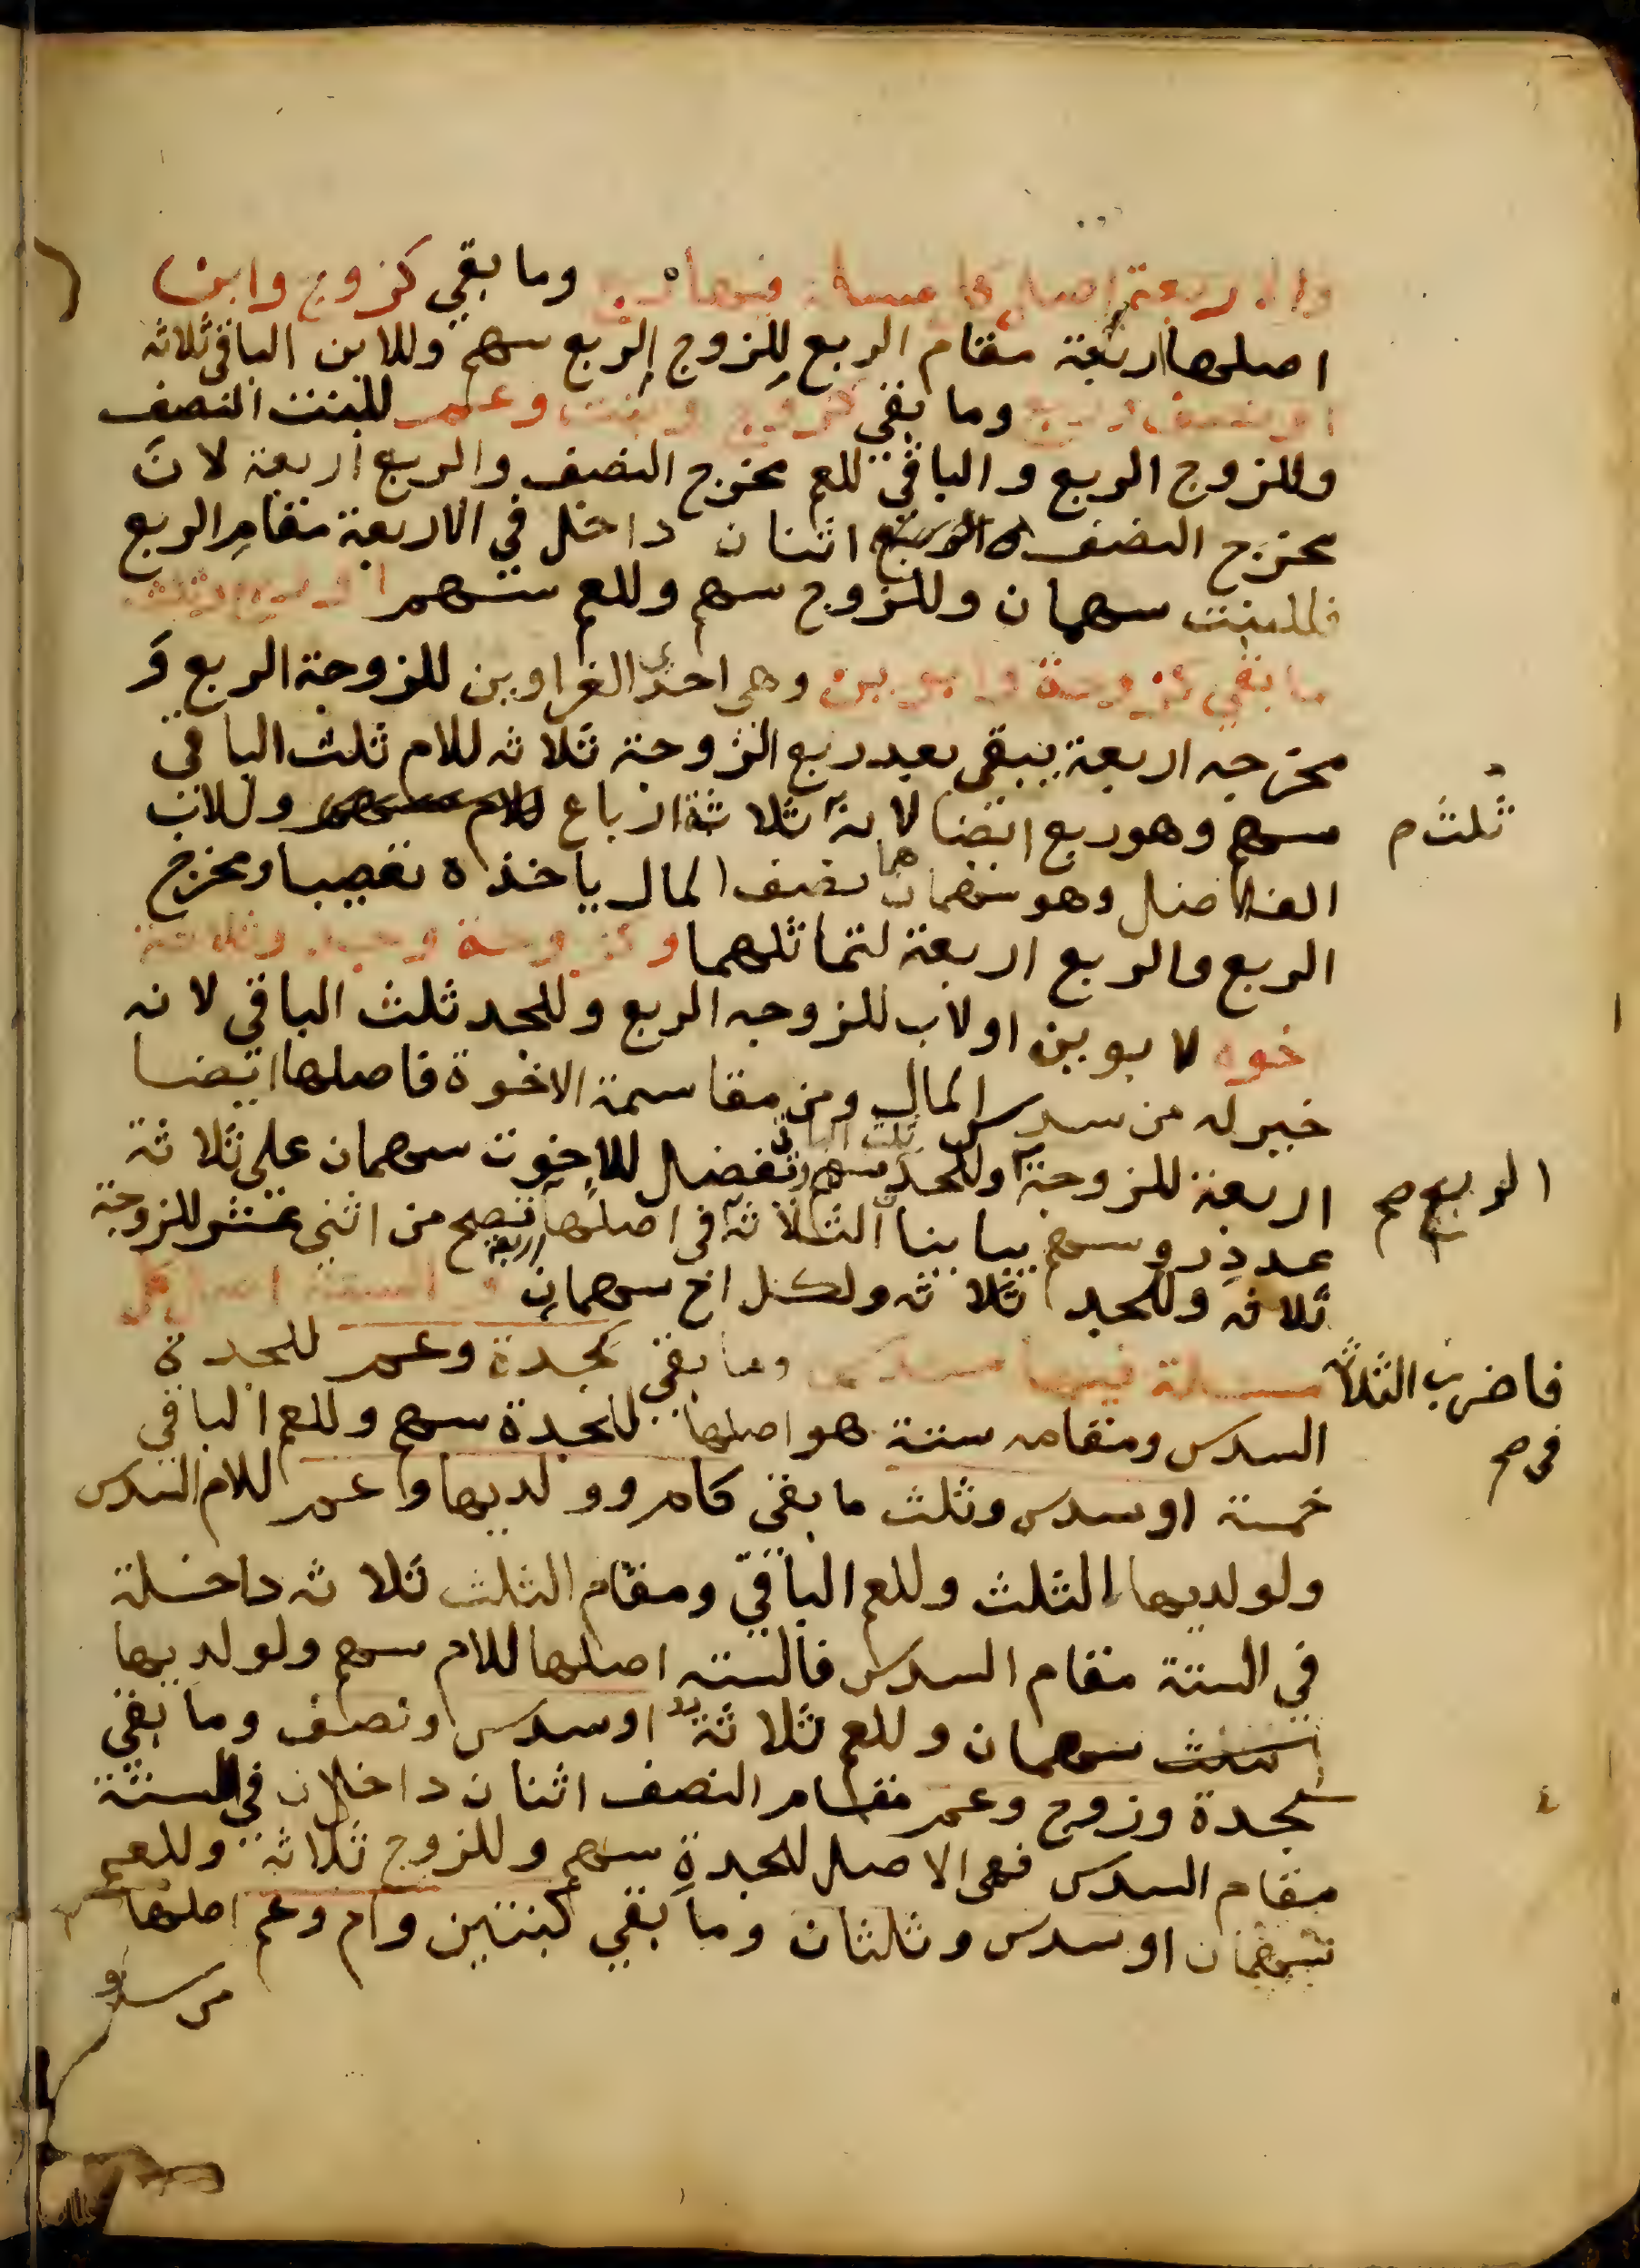 والاربعة اصل كل مسئلة فيها ربع وما بقي كزوج وابن
اصلها اربعة مقام الربع للزوج الربع سهم وللابن الباقي ثلاثه
او نصف وربع وما بقي كزوج وبنت وعم للبنت النصف
وللزوج الربع والباقي للعم مخرج النصف والربع اربعة لان
مخرج النصف اثنان داخل في الاربعة مقام الربع
فللبنت سهمان وللزوج سهم وللعم سهم او ربع وثلث
ما بقي كزوجة وابوين وهي احدى الغراوين للزوجة الربع و
مخرجه اربعة يبقى بعد ربع الزوجة ثلاثه للام ثلث الباقي
سهم وهو ربع ايضا لانه ثلث ثلاثة ارباع وللاب
الفاضل وهو سهمان هما نصف المال ياخذه تعصيبا ومخرج
الربع والربع اربعة لتماثلهما وكزوجة وجد وثلاثة
اخوه لابوين او لاب للزوجه الربع وللجد ثلث الباقي لانه
خير له من سدس المال ومن مقاسمة الاخوة فاصلها ايضا
اربعة للزوجة الربع وللجد ثلث الباقي سهم وتفضل للاخوت سهمان على ثلاثة
عدد روسهم يباينا الثلاثة فاضرب الثلاثة في اصلها اربعة تصح من اثني عشر للزوجة
ثلاثه وللجد ثلاثه ولكل اخ سهمان والستة اصل كل
مسئلة فيها سدس وما بقي كجدة وعم للجدة
السدس ومقامه ستة هو اصلها للجدة سهم وللعم الباقي
خمسة او سدس وثلث ما بقي كام وولديها وعم للام السدس
ولولديها الثلث وللعم الباقي ومقام الثلث ثلاثه داخلة
في الستة مقام السدس فالسته اصلها للام سهم ولولديها
سهمان وللعم ثلاثة او سدس ونصف وما بقي
كجدة وزوج وعم مقام النصف اثنان داخلان في الستة
مقام السدس فهى الاصل للجدة سهم وللزوج ثلاثة وللعم
سهمان او سدس وثلثان وما بقي كبنتين وام وعم اصلها